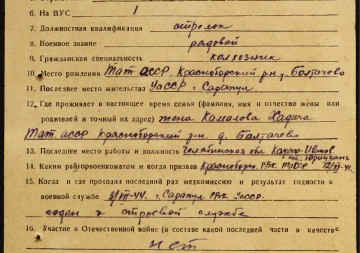 6. На ВУС 1
7. Должностная квалификация стрелок
8. Военное звание рядовой
9. Гражданская специальность колхозник
10. Место рождения Тат АССР, Красноборский р-н д. Балтачево
11. Последнее место жительства УАССР, г. Сарапул
12. Где проживает в настоящее время семья (фамилия, имя и отчество жены или
родителей и точный их адрес) жена Камалова Хадича
Тат. АССР Красноборский р-н. д. Балтачево
13. Последнее место работы и должность Челябинская обл.
14. Каким райгорвоенкоматом и когда призван Красноборск. РВК ТАССР
15. Когда и где проходил последний раз медкомиссию и результат годности к
военной службе г. Сарапул РВК УАССР.
годен к строевой службе
16. Участие в Отечественной войне (в составе какой последней части и в качестве
нет